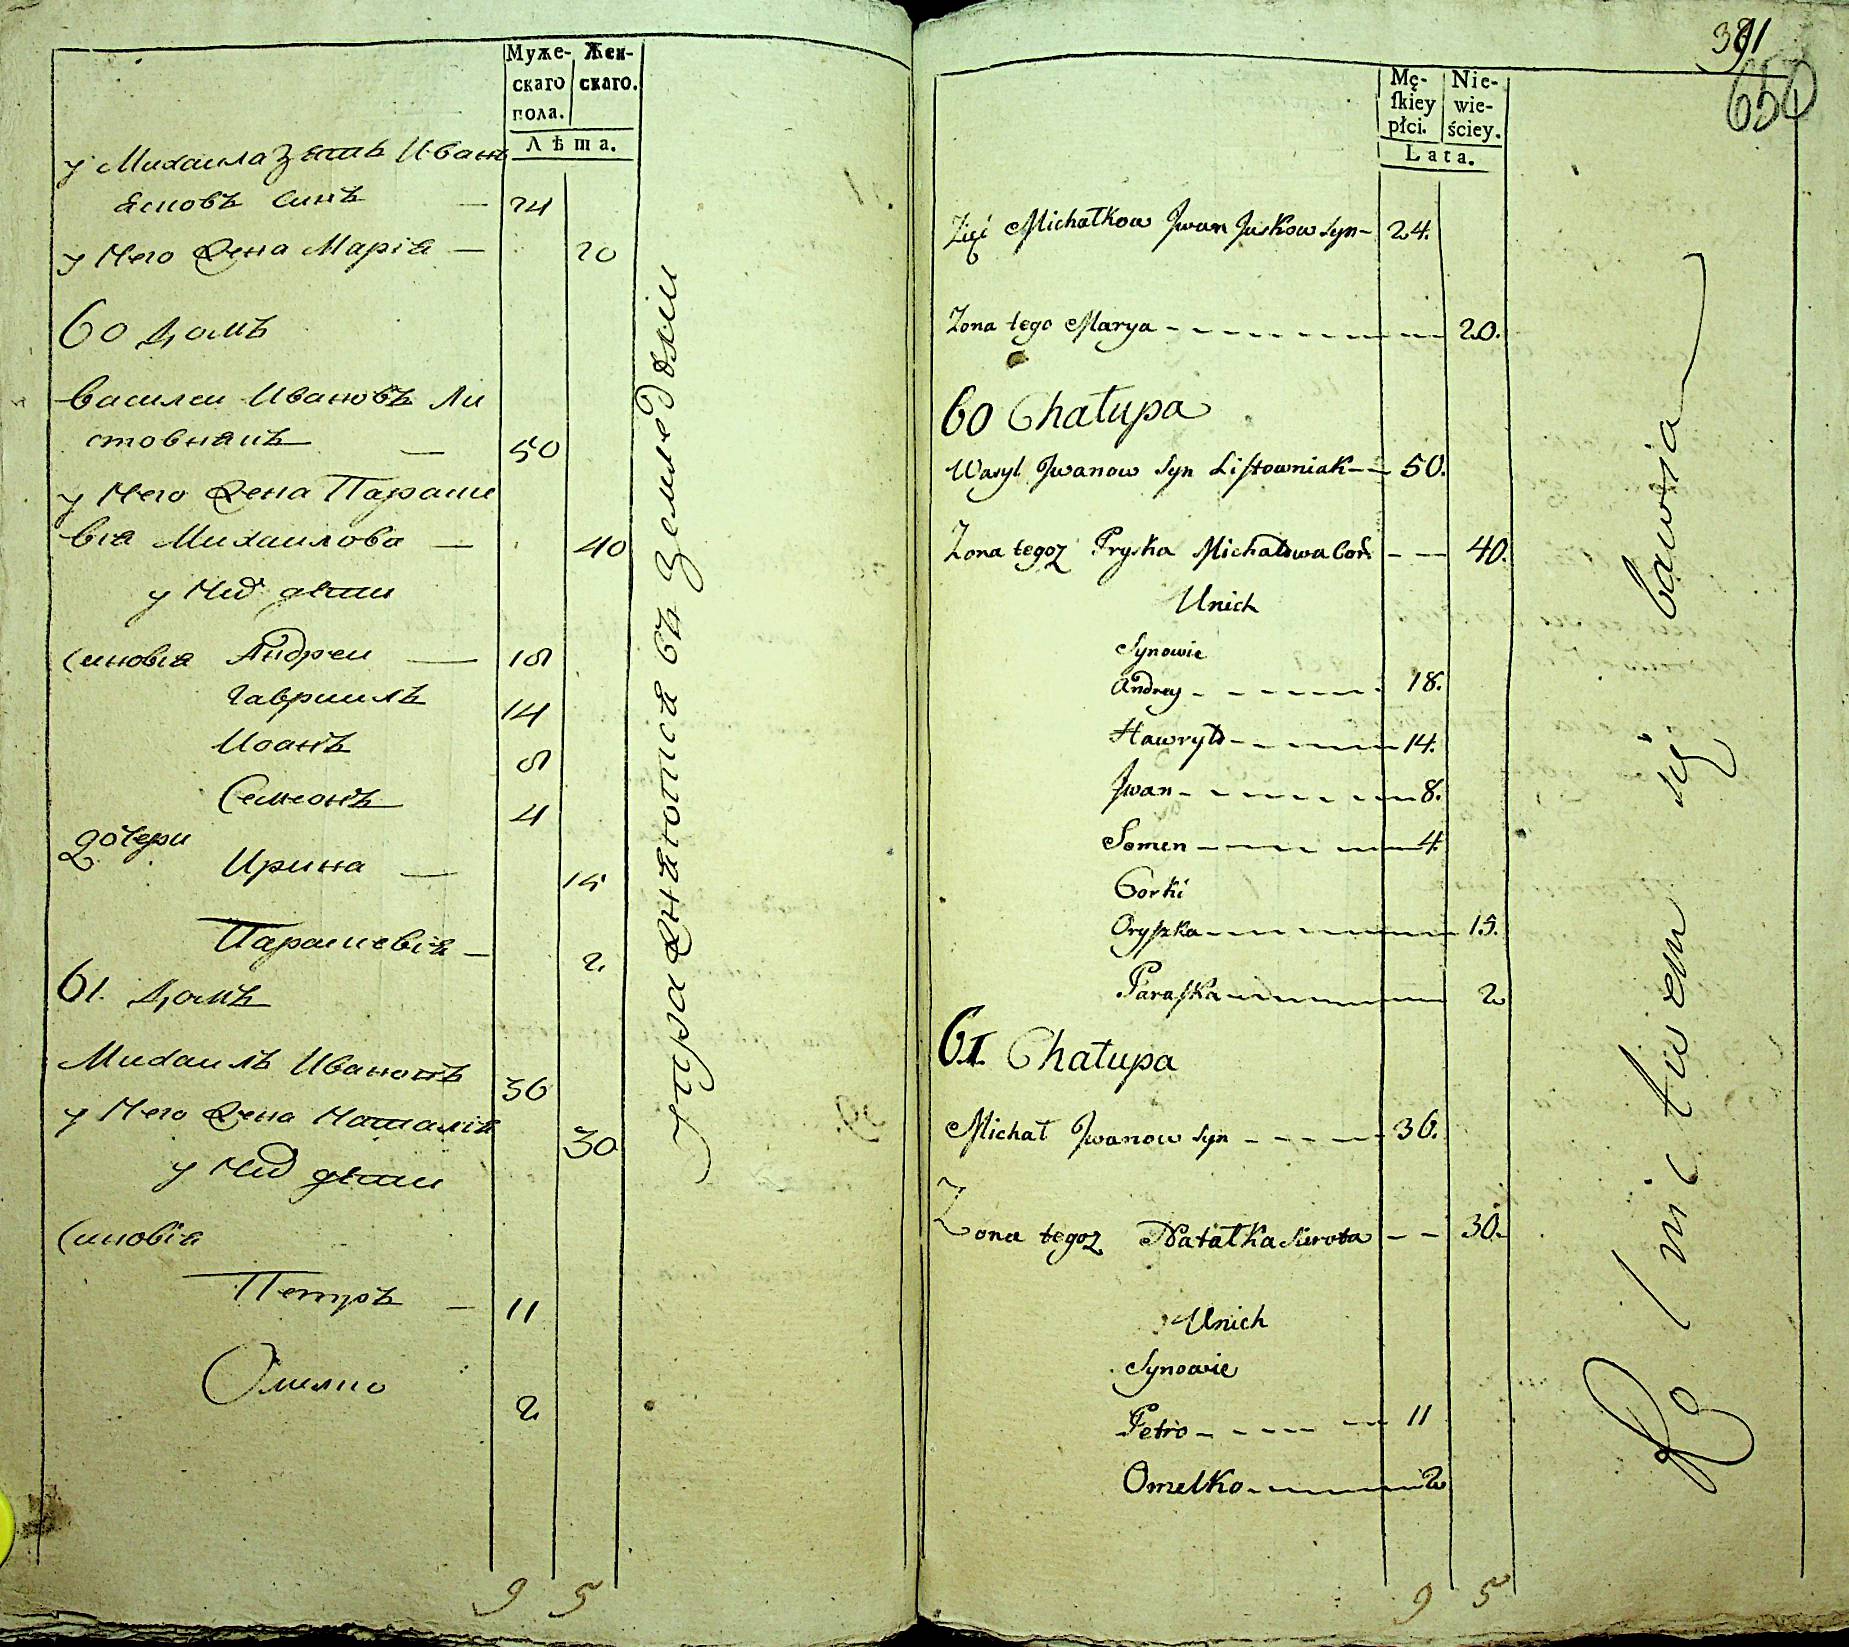 Муже-
скаго
пола.
Жен-
скаго.
Лѣта.
у Михаила Зять Иванъ
Яковъ синъ — 24
у Него Жена Марія — 20
60 домъ
Василеи Ивановъ Ли
стовнякъ — 50
у Него Жена Параске
вія Михаилова — 40
у Них дѣти
Синовія Андреи — 18
Гавриилъ 14
Иоанъ 8
Семионъ 4
дочери
Ирина — 15
Параскевія — 2
61. домъ
Михаилъ Ивановъ 36
у Него Жена Наталія 30
у Них дѣти
Синовія
Петръ — 11
Омелко 2
упражняются въ земледѣлїи
9 5
391
650
Mę-
ſkiey
płci.
Nie-
wie-
ściey.
Lata.
Zięć Michałkow Jwan Juskow syn - 24.
Zona tego Marya - - - - - - - - 20.
60 Chałupa
Wasyl Jwanow Syn Listowniak - - 50.
Zona tegoz Pryska Michałowa Cor. - - 40.
Unich
Synowie
Andrey - - - - - - 18.
Hawryło - - - - - - 14.
Jwan - - - - - - 8.
Semen - - - - - 4.
Corki
Oryszka - - - - - - 15.
Paraska - - - - - - 2
61. Chałupa
Michał Jwanow syn - - - - - 36.
Zona tegoz Natałka Sierota - - 30.
Unich
Synowie
Petro - - - - - - 11
Omelko - - - - - - 2
Rolnictwem się bawią
9 5